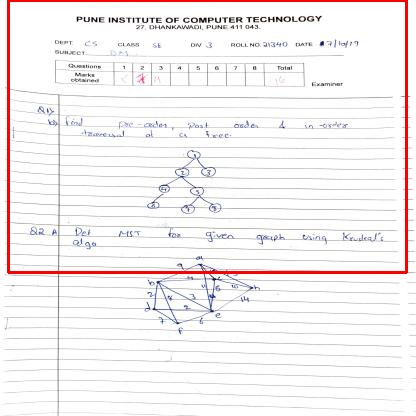 PUNE INSTITUTE OF COMPUTER TECHNOLOGY
27, DHANKAWADI, PUNE 411 043.
DEPT. CS CLASS SE DIV 3 ROLL NO. 21340 DATE 17/10/19
SUBJECT DM
Questions 1 2 3 4 5 6 7 8 Total
Marks obtained
Examiner
Q1)
b) find pre-order, post order & in-order
traversal of a tree.
1
2 3
4 5
6 7 8
Q2 A Det MST for given graph using Krudral's
algo
a
9
b
c
h
2 8 3 14
d 2 e
7 6
f